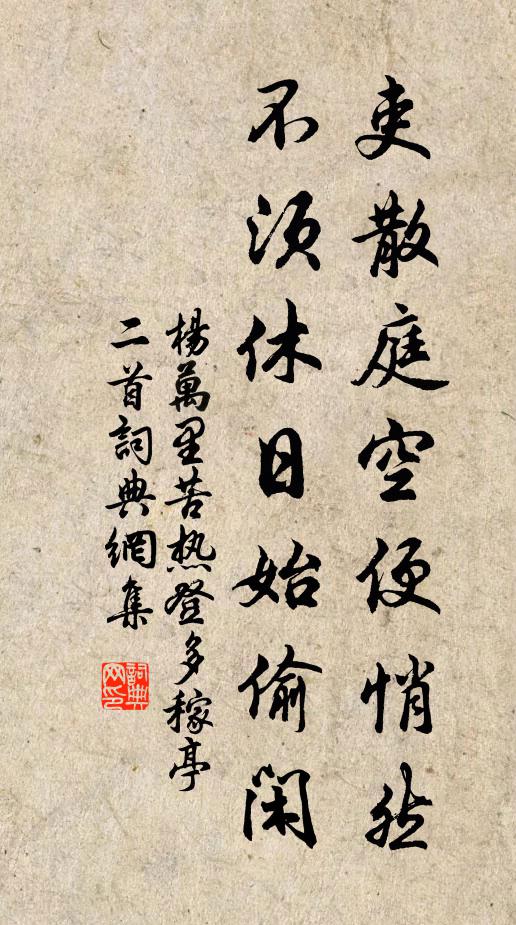 吏散庭空便悄然
不須休日始偷閑
楊萬里苦熱登多稼亭
二首詞典網集
詞典
网印